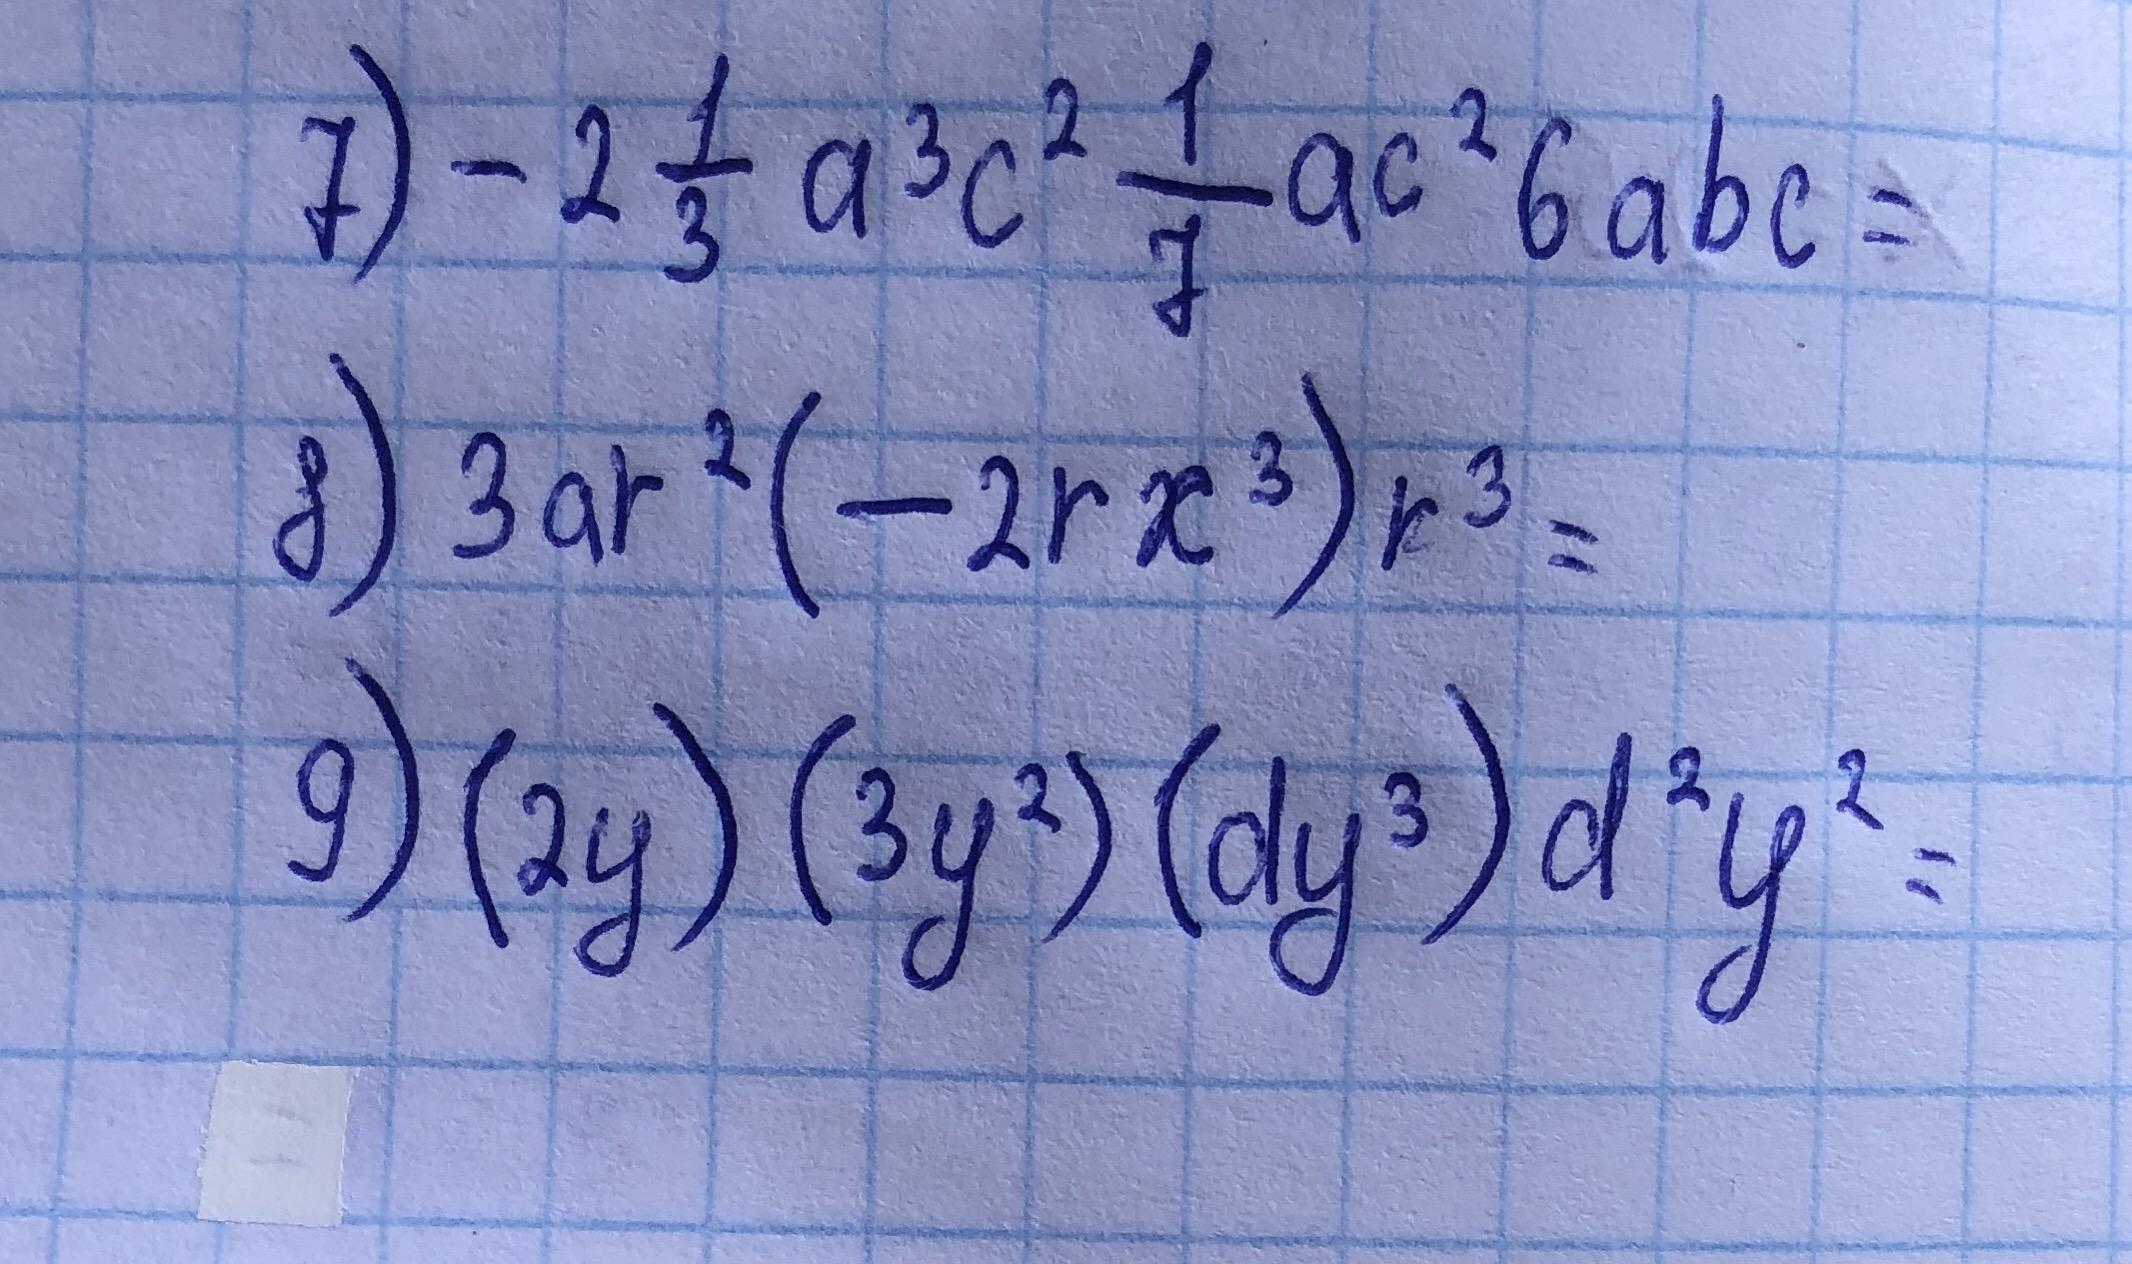 7) -2 1/3 a³c² 1/7 ac² 6abc =
8) 3ar² (-2rx³) r³ =
9) (2y) (3y²) (dy³) d²y² =